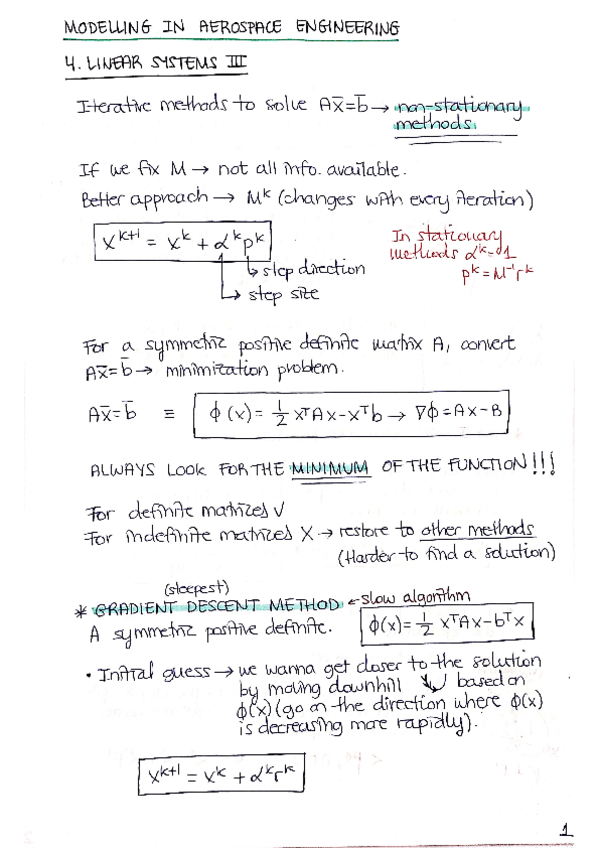 MODELLING IN AEROSPACE ENGINEERING
4. LINEAR SYSTEMS III
Iterative methods to solve Ax̄=b̄ → non-stationary
methods.
If we fix M → not all info. available.
Better approach → Mᵏ (changes with every iteration)
xᵏ⁺¹ = xᵏ + αᵏpᵏ
In stationary
methods αᵏ=1
pᵏ=M⁻¹rᵏ
↳ step direction
↳ step size
For a symmetric positive definite matrix A, convert
Ax̄=b̄ → minimization problem.
Ax̄=b̄ ≡ ϕ(x) = 1/2 xᵀAx-xᵀb → ∇ϕ=Ax-B
ALWAYS LOOK FOR THE MINIMUM OF THE FUNCTION!!!
For definite matrizes V
For indefinite matrizes X → restore to other methods
(Harder to find a solution)
(steepest)
* GRADIENT DESCENT METHOD ← slow algorithm
A symmetric positive definite. ϕ(x) = 1/2 xᵀAx-bᵀx
• Initial guess → we wanna get closer to the solution
by moving downhill ↘↙ based on
ϕ(x) (go in the direction where ϕ(x)
is decreasing more rapidly).
xᵏ⁺¹ = xᵏ + αᵏrᵏ
1